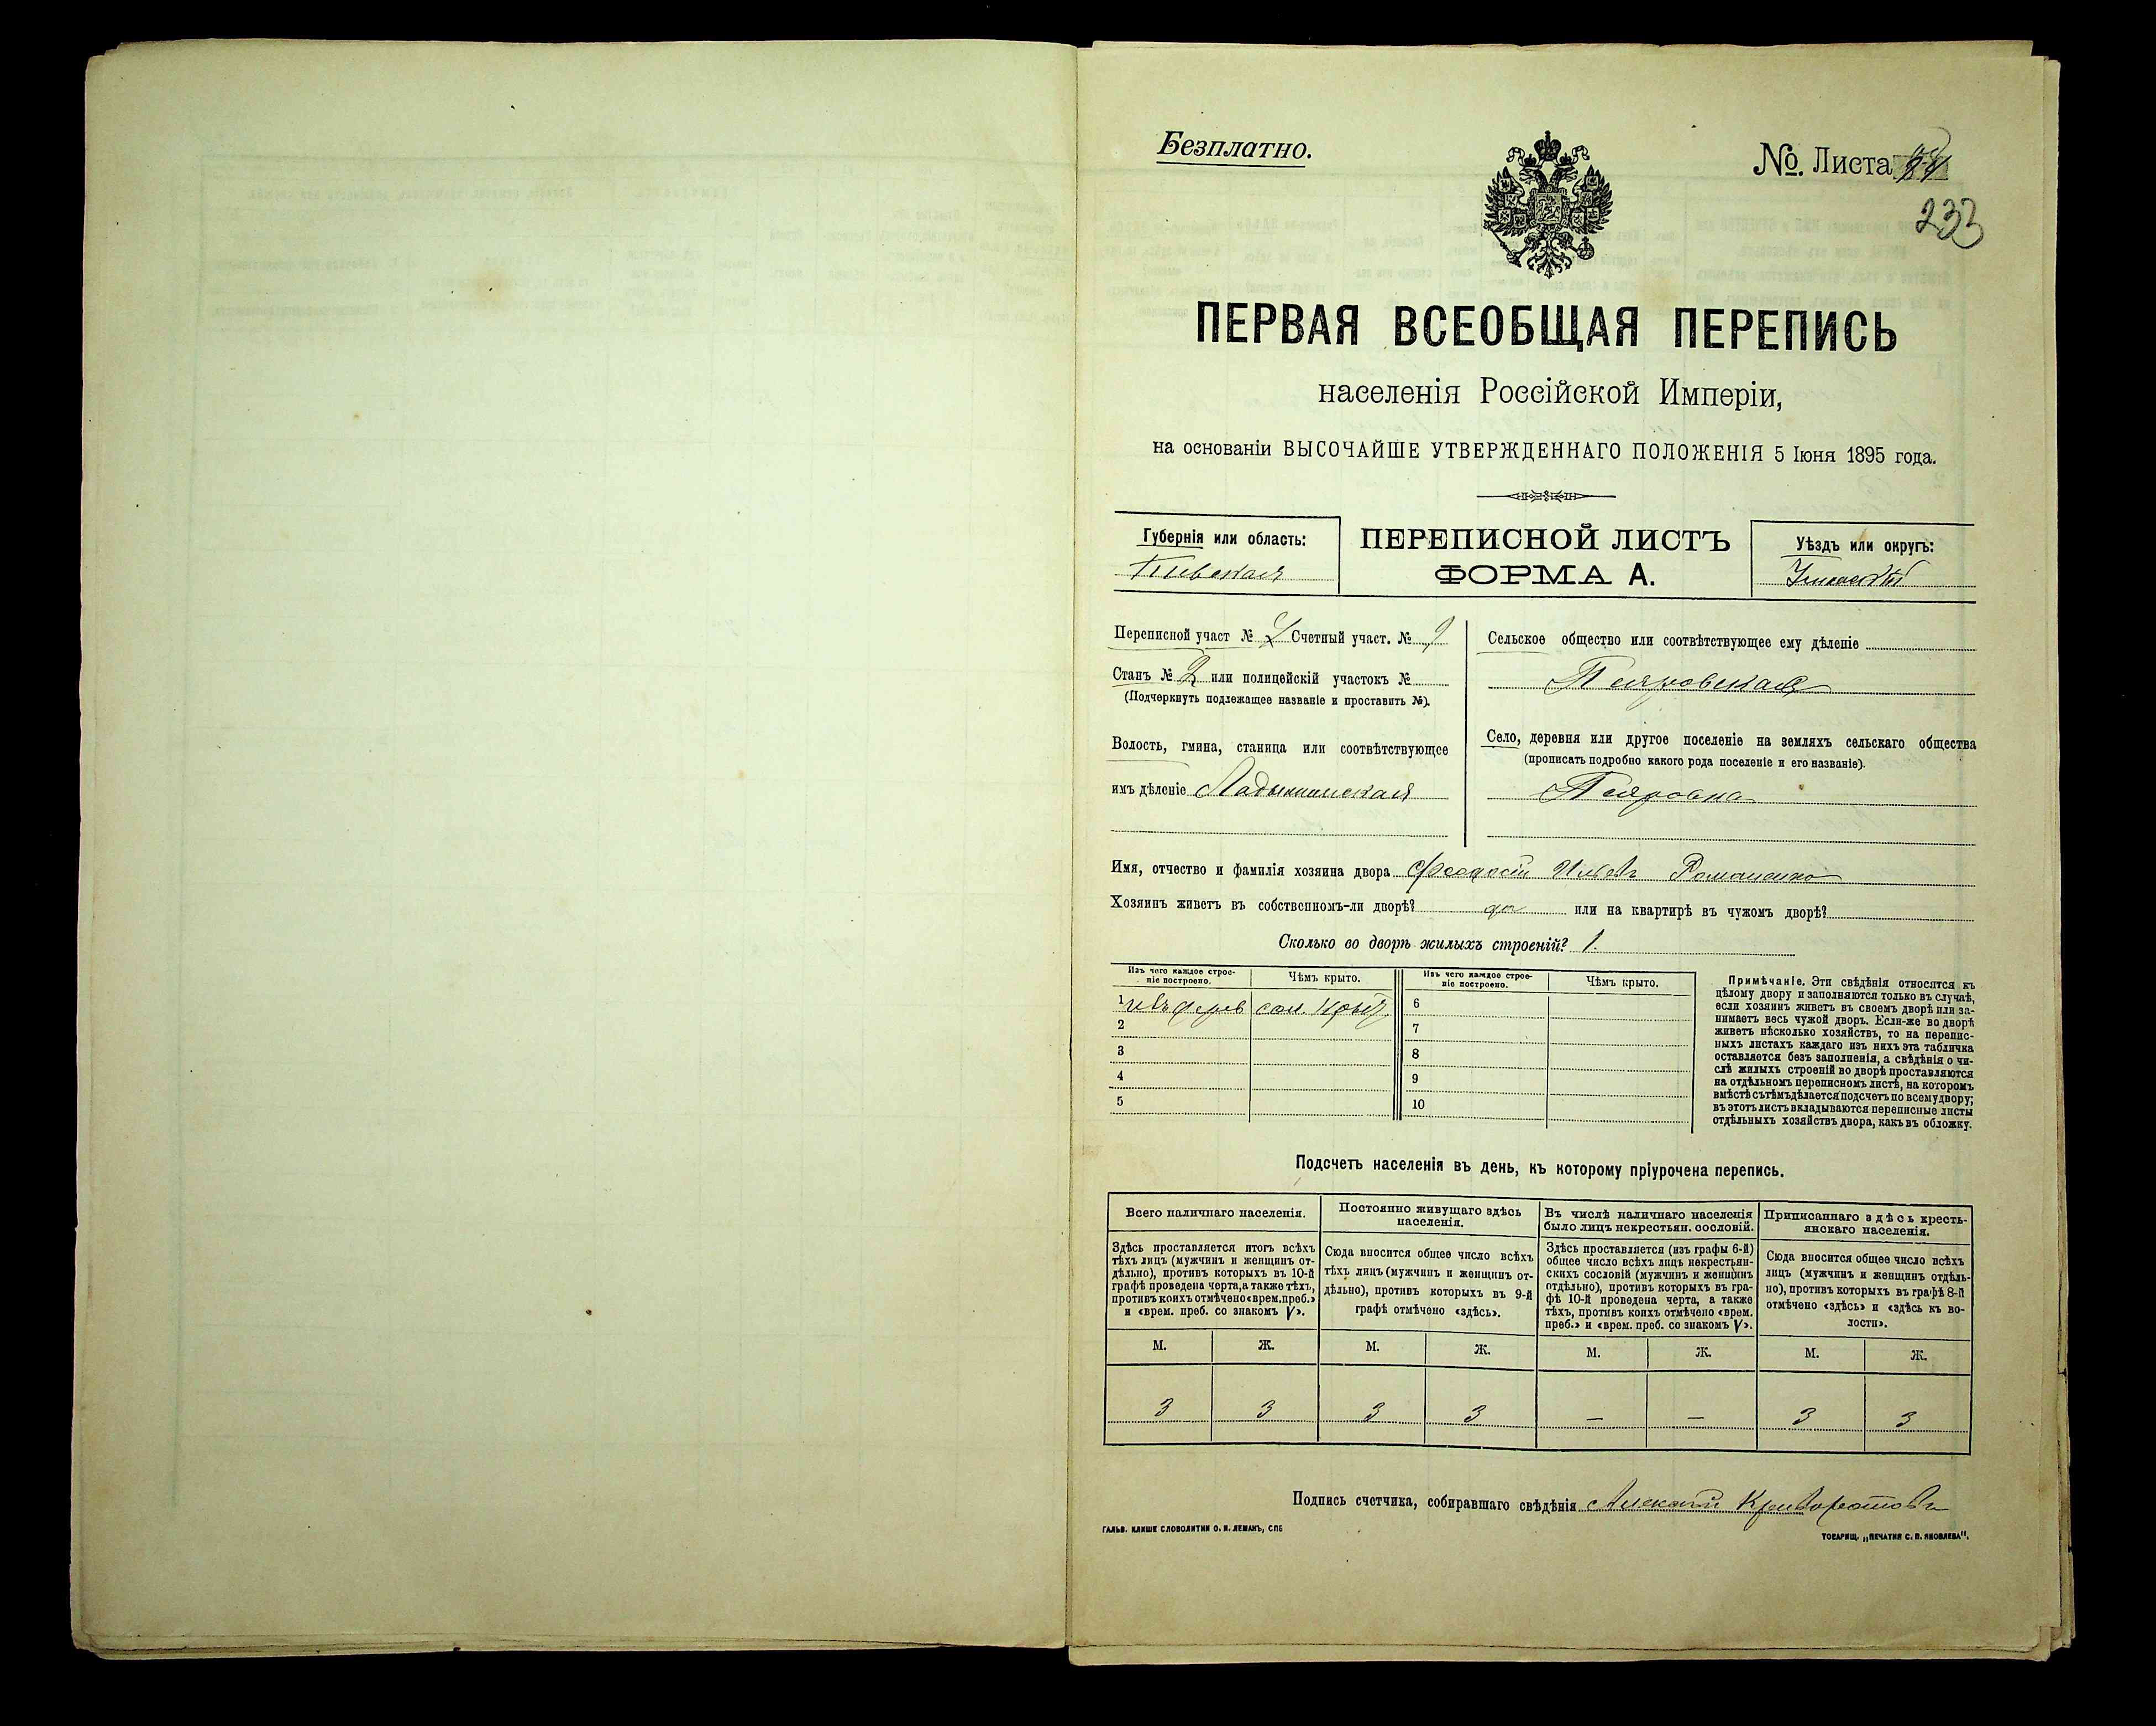 Безплатно.
№. Листа
233
ПЕРВАЯ ВСЕОБЩАЯ ПЕРЕПИСЬ
населенія Россійской Имперіи,
на основаніи ВЫСОЧАЙШЕ УТВЕРЖДЕННАГО ПОЛОЖЕНІЯ 5 Іюня 1895 года.
Губернія или область:
Кіевская
ПЕРЕПИСНОЙ ЛИСТЪ
ФОРМА А.
Уѣздъ или округъ:
Уманскій
Переписной участ № Счетный участ. № 9
Станъ № 2 или полицейскій участокъ №
(Подчеркнуть подлежащее названіе и проставить №).
Волость, гмина, станица или соотвѣтствующее
имъ дѣленіе Ладыжинская
Сельское общество или соотвѣтствующее ему дѣленіе
Село, деревня или другое поселеніе на земляхъ сельскаго общества
(прописать подробно какого рода поселеніе и его названіе).
Имя, отчество и фамилія хозяина двора Феодосій Ильевъ Романенко
Хозяинъ живетъ въ собственномъ-ли дворѣ? да или на квартирѣ въ чужомъ дворѣ?
Сколько во дворѣ жилыхъ строеній? 1.
Изъ чего каждое строе-
ніе построено.
Чѣмъ крыто.
Изъ чего каждое строе-
ніе построено.
Чѣмъ крыто.
1 изъ дерев сол. крыт.
2
3
4
5
6
7
8
9
10
Примѣчаніе. Эти свѣдѣнія относятся къ
цѣлому двору и заполняются только въ случаѣ,
если хозяинъ живетъ въ своемъ дворѣ или за-
нимаетъ весь чужой дворъ. Если-же во дворѣ
живетъ нѣсколько хозяйствъ, то на перепис-
ныхъ листахъ каждаго изъ нихъ эта табличка
оставляется безъ заполненія, а свѣдѣнія о чи-
слѣ жилыхъ строеній во дворѣ проставляются
на отдѣльномъ переписномъ листѣ, на которомъ
вмѣстѣ съ тѣмъ дѣлается подсчетъ по всему двору;
въ этотъ листъ вкладываются переписные листы
отдѣльныхъ хозяйствъ двора, какъ въ обложку.
Подсчетъ населенія въ день, къ которому пріурочена перепись.
Всего наличнаго населенія.
Здѣсь проставляется итогъ всѣхъ
тѣхъ лицъ (мужчинъ и женщинъ от-
дѣльно), противъ которыхъ въ 10-й
графѣ проведена черта, а также тѣхъ,
противъ коихъ отмѣчено «врем. преб.»
и «врем. преб. со знакомъ V».
Постоянно живущаго здѣсь
населенія.
Сюда вносится общее число всѣхъ
тѣхъ лицъ (мужчинъ и женщинъ от-
дѣльно), противъ которыхъ въ 9-й
графѣ отмѣчено «здѣсь».
Въ числѣ наличнаго населенія
было лицъ некрестьян. сословій.
Здѣсь проставляется (изъ графы 6-й)
общее число всѣхъ лицъ некрестьян-
скихъ сословій (мужчинъ и женщинъ
отдѣльно), противъ которыхъ въ гра-
фѣ 10-й проведена черта, а также
тѣхъ, противъ коихъ отмѣчено «врем.
преб.» и «врем. преб. со знакомъ V».
Приписаннаго здѣсь кресть-
янскаго населенія.
Сюда вносится общее число всѣхъ
лицъ (мужчинъ и женщинъ отдѣль-
но), противъ которыхъ въ графѣ 8-й
отмѣчено «здѣсь» и «здѣсь къ во-
лости».
М. Ж. М. Ж. М. Ж. М. Ж.
3 3 3 3 – – 3 3
Подпись счетчика, собиравшаго свѣдѣнія Алексѣй Криворотовъ
ГАЛЬВ. КЛИШЕ СЛОВОЛИТНИ О. И. ЛЕМАНЪ, СПБ
ТОВАРИЩ. „ПЕЧАТНЯ С. П. ЯКОВЛЕВА“.